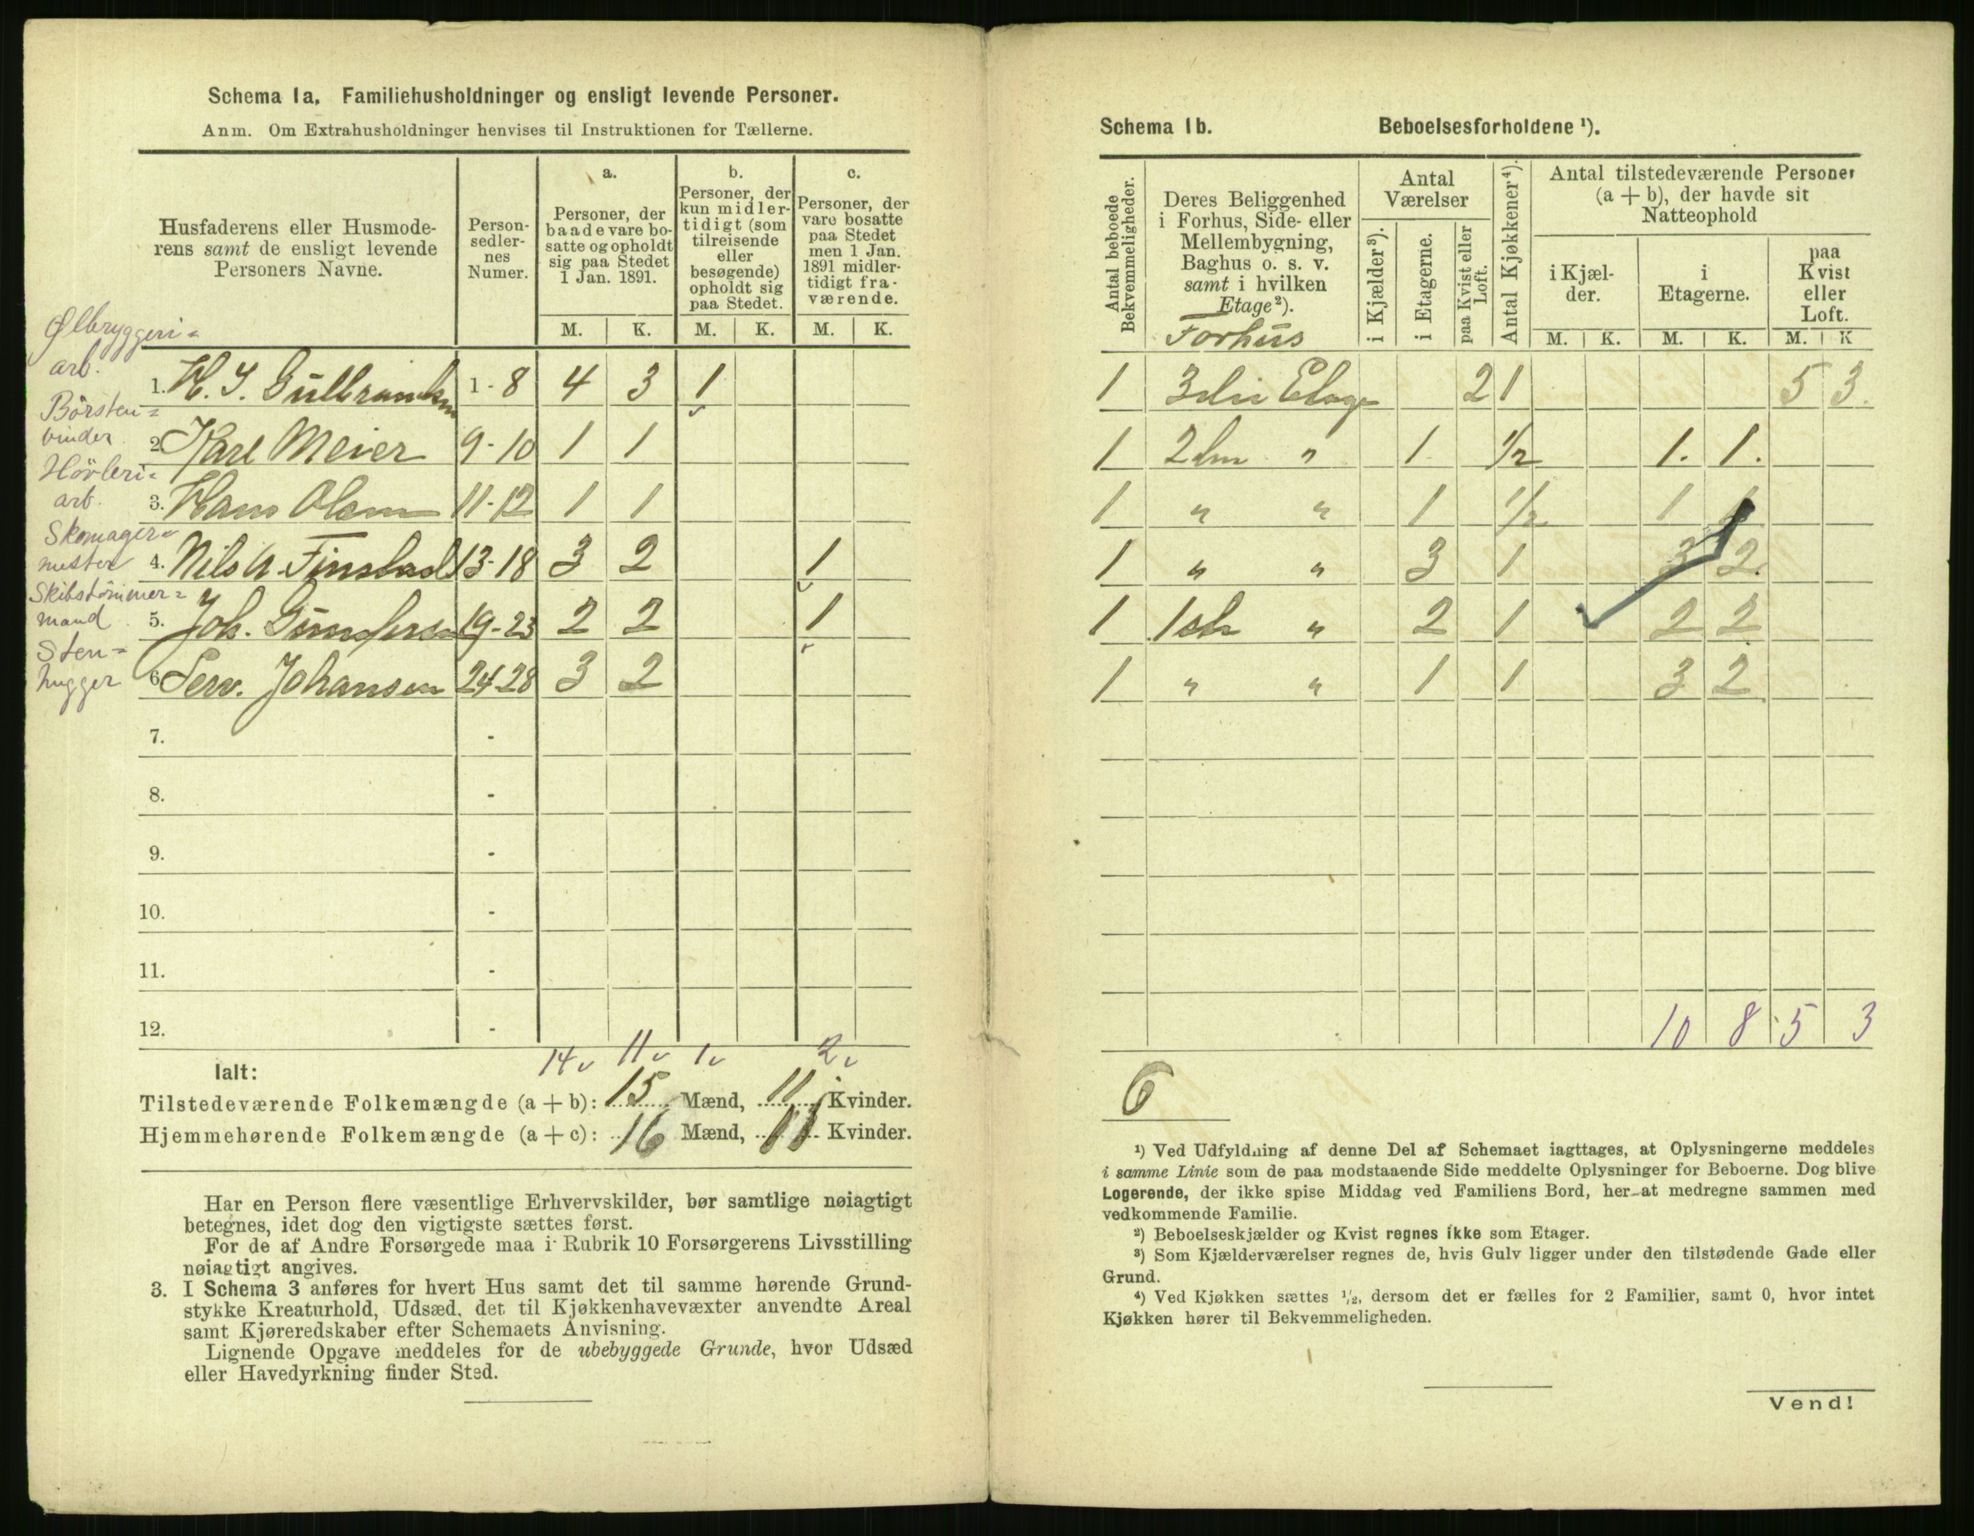 Schema 1a. Familiehusholdninger og ensligt levende Personer.
Anm. Om Extrahusholdninger henvises til Instruktionen for Tællerne.
Husfaderens eller Husmoderens samt de ensligt levende Personers Navne.
Personsedlernes Numer.
a. Personer, der baade vare bosatte og opholdt sig paa Stedet 1 Jan. 1891.
b. Personer, der kun midlertidigt (som tilreisende eller besøgende) opholdt sig paa Stedet.
c. Personer, der vare bosatte paa Stedet men 1 Jan. 1891 midlertidigt fraværende.
M. K. M. K. M. K.
Ølbryggeri=
arb.
1. H. J. Gulbrandsen 1-8 4 3 1
Börsten=
binder
2. Karl Meier 9-10 1 1
Hövleri=
arb.
3. Hans Olsen 11-12 1 1
Skomager=
mester
4. Nils A. Finstad 13-18 3 2 1
Skibstömmer=
mand
5. Joh. Gundersen 19-23 2 2 1
Sten=
hugger
6. Serv. Johansen 24-28 3 2
7. -
8. -
9. -
10. -
11. -
12. -
Ialt: 14 11 1 2
Tilstedeværende Folkemængde (a + b): 15 Mænd, 11 Kvinder.
Hjemmehørende Folkemængde (a + c): 16 Mænd, 11 Kvinder.
Har en Person flere væsentlige Erhvervskilder, bør samtlige nøiagtigt
betegnes, idet dog den vigtigste sættes først.
For de af Andre Forsørgede maa i Rubrik 10 Forsørgerens Livsstilling
nøiagtigt angives.
3. I Schema 3 anføres for hvert Hus samt det til samme hørende Grund-
stykke Kreaturhold, Udsæd, det til Kjøkkenhavevæxter anvendte Areal
samt Kjøreredskaber efter Schemaets Anvisning.
Lignende Opgave meddeles for de ubebyggede Grunde, hvor Udsæd
eller Havedyrkning finder Sted.
Schema 1b. Beboelsesforholdene ¹).
Antal beboede Bekvemmeligheder.
Deres Beliggenhed i Forhus, Side- eller Mellembygning, Baghus o. s. v. samt i hvilken Etage²).
Forhus
Antal Værelser
i Kjælder³).
i Etagerne.
paa Kvist eller Loft.
Antal Kjøkkener⁴).
Antal tilstedeværende Personer (a + b), der havde sit Natteophold
i Kjælder.
i Etagerne.
paa Kvist eller Loft.
M. K. M. K. M. K
1 3die Etage 2 1 5 3
1 2den " 1 1/2 1. 1.
1 " " 1 1/2 1 1
1 " " 3 1 3 2
1 1ste " 2 1 2 2
1 " " 1 1 3 2
10 8 5 3
6
¹) Ved Udfyldning af denne Del af Schemaet iagttages, at Oplysningerne meddeles
i samme Linie som de paa modstaaende Side meddelte Oplysninger for Beboerne. Dog blive
Logerende, der ikke spise Middag ved Familiens Bord, her at medregne sammen med
vedkommende Familie.
²) Beboelseskjælder og Kvist regnes ikke som Etager.
³) Som Kjælderværelser regnes de, hvis Gulv ligger under den tilstødende Gade eller
Grund.
⁴) Ved Kjøkken sættes ½, dersom det er fælles for 2 Familier, samt 0, hvor intet
Kjøkken hører til Bekvemmeligheden.
Vend!